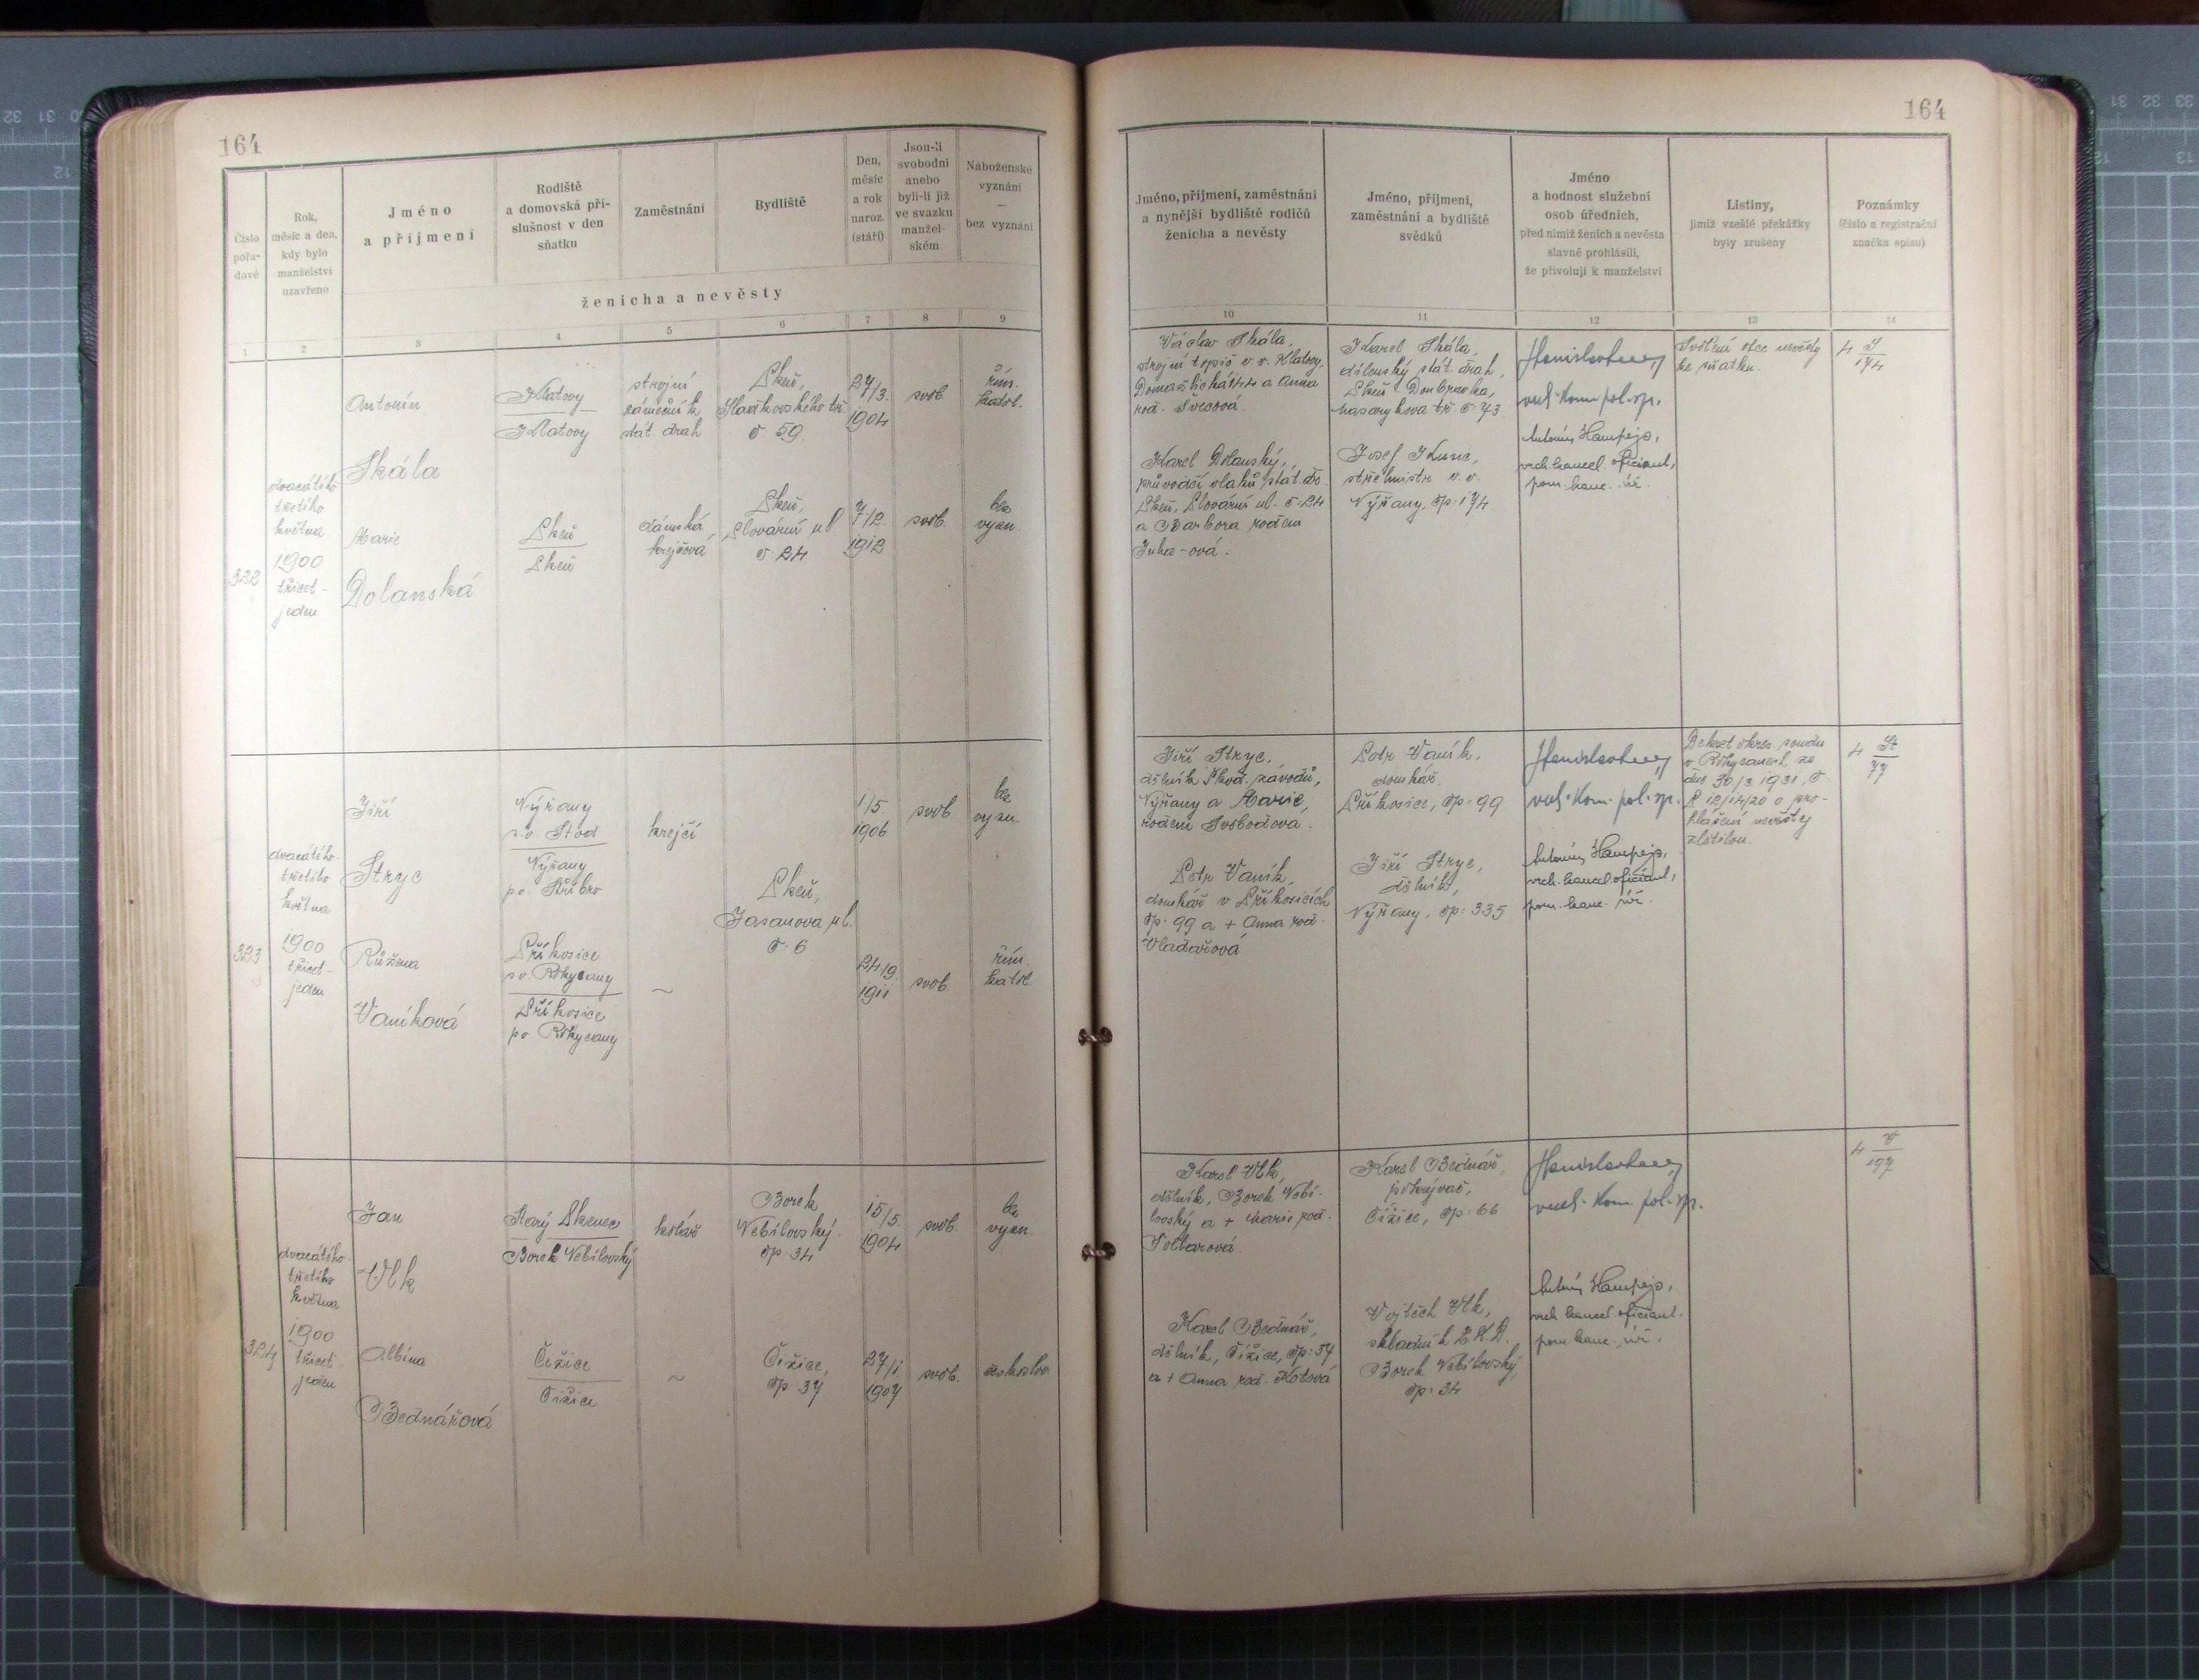 164
164
Číslo pořa- dové
Rok, měsíc a den, kdy bylo manželství uzavřeno
Jméno a příjmení
Rodiště a domovská pří- slušnost v den sňatku
Zaměstnání
Bydliště
Den, měsíc a rok naroz. (stáří)
Jsou-li svobodni anebo byli-li již ve svazku manžel- ském
Náboženské vyznání — bez vyznání
ženicha a nevěsty
1 2 3 4 5 6 7 8 9
Jméno, příjmení, zaměstnání a nynější bydliště rodičů ženicha a nevěsty
Jméno, příjmení, zaměstnání a bydliště svědků
Jméno a hodnost služební osob úředních, před nimiž ženich a nevěsta slavně prohlásili, že přivolují k manželství
Listiny, jimiž vzešlé překážky byly zrušeny
Poznámky (číslo a registrační značka spisu)
10 11 12 13 14
322
dvacátého
třetího
května
1900
třicet-
jeden
Antonín
Skála
Marie
Dolanská
Klatovy
Klatovy
Plzeň
Plzeň
strojní
zámečník
stát. drah
dámská
krejčová
Plzeň,
č 59
Plzeň,
Slovanská ul
č. 24
27/3.
1904
7/2.
1912
svob.
svob.
řím.
katol.
bez
vyzn.
Václav Skála,
strojní topič v. v. Klatovy,
Domažlická 144 a Anna
roz. Švecová.
Karel Dolanský,
průvodčí vlaků stát. dr.
Plzeň, Slovanská ul. č. 24
a Barbora rozem
Juha-ová.
Karel Skála,
dílenský stát. drah,
Plzeň Doubravka,
Masarykova tř. č. 73
Josef Kunc,
střelmistr v. v.
Nýřany, čp. 174
vrch. kom. pol. sp.
Antonín Hampejs,
vrch. kancel. oficiant,
pom. kanc. úř.
Svolení otce nevěsty
ke sňatku.
4 S
174
323
dvacátého-
třetího
května
1900
třicet-
jeden
Jiří
Stryc
Růžena
Vaníková
Nýřany
s. o. Stod
Nýřany
p. o. Stříbro
Příkosice
s. o. Rokycany
Příkosice
p. o. Rokycany
krejčí
~
Plzeň,
Jasanova ul.
č. 6
1/5
1906
24/9.
1911
svob.
svob.
bez
vyzn.
řím.
katol.
Jiří Stryc,
dělník Škod. závodů,
Nýřany a Marie,
rozená Svobodová.
Petr Vaník,
domkář v Příkosicích
čp. 99 a + Anna roz.
Vladařová
Petr Vaník,
domkář
Příkosice, čp. 99
Jiří Stryc,
dělník,
Nýřany, čp. 335
vrch. kom. pol. sp.
Antonín Hampejs,
vrch. kancel. oficiant,
pom. kanc. úř.
Dekret okres. soudu
v Rokycanech ze
dne 30/3. 1931, č.
P 12/14/20 o pro-
hlášení nevěsty
zletilou.
4 St
77
324
dvacátého
třetího
května
1900
třicet-
jeden
Jan
Vlk
Albína
Bednářová
Starý Plzenec
Borek Nebílovský
Čižice
Čižice
kolář
~
Borek
Nebílovský
čp. 34
Čižice,
čp. 37
15/5.
1904
27/1
1907
svob.
svob.
bez
vyzn.
českoslov.
Karel Vlk,
dělník, Borek Nebí-
lovský a + Marie roz.
Karel Bednář,
dělník, Čižice, čp. 37
a + Anna roz. Kotová
Karel Bednář,
pokrývač,
Čižice, čp. 66
Vojtěch Vlk,
skladník
Borek Nebílovský,
čp. 34
vrch. kom. pol. sp.
Antonín Hampejs,
vrch. kancel. oficiant.
pom. kanc. úř.
4 V
197